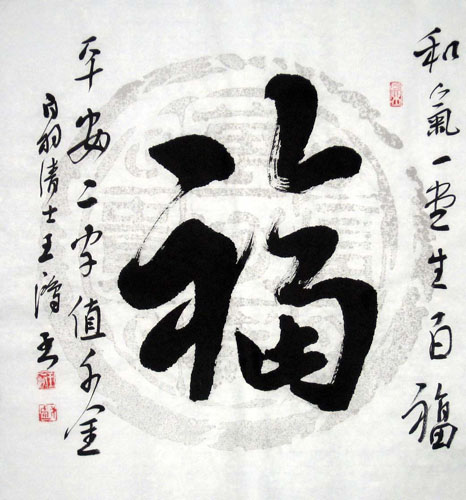 和氣一堂生百福
福
平安二字值千金
清士王